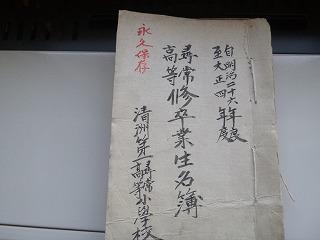 自明治二十六年度
至大正四年度
尋常
高等修卒業生名簿
清洲第一尋常高等小学校
永久保存